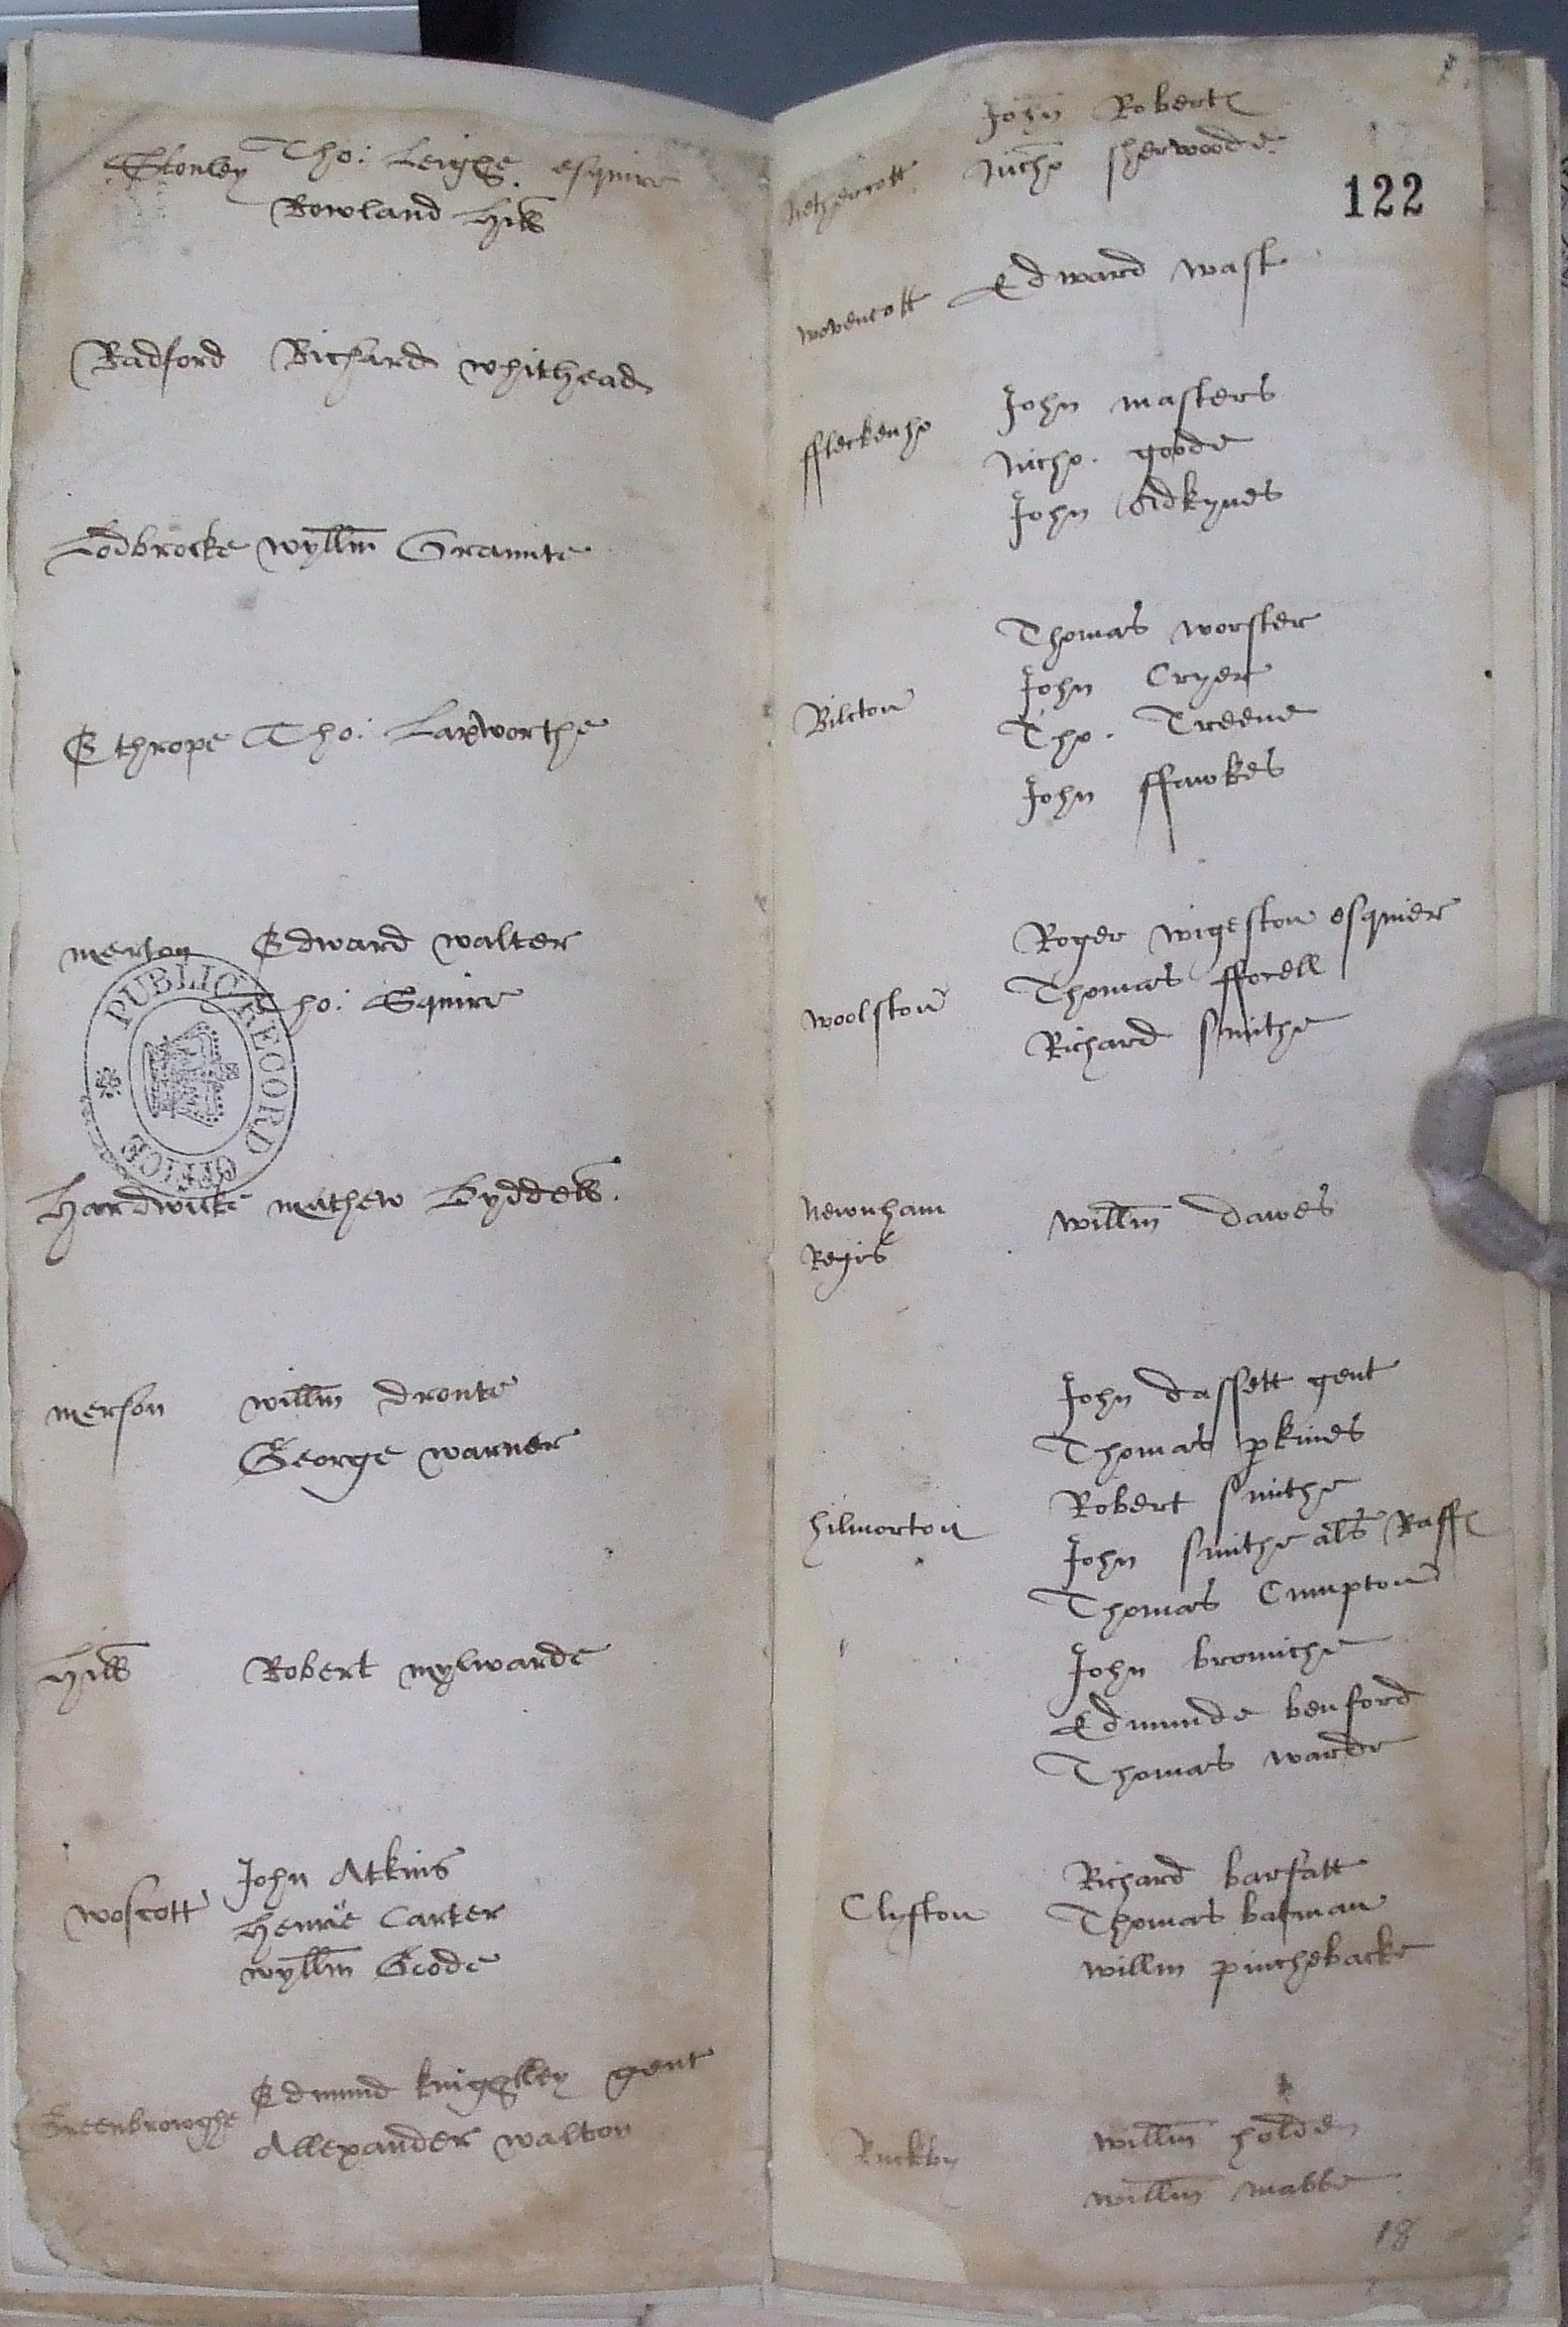 Stonley Tho: Leighe esquire
Rowland Hill
Radford Richard whithead
Lodbrocke wyllm Graunte
Ethrope Tho: Laxworthe
merton Edward walter
Tho: Squire
PUBLIC RECORD OFFICE
Hardwicke mathew Byddell
merson willm dronte
George warner
Hill Robert mylwarde
woscott John Atkins
Henrie Carter
wyllm Goode
Greenbrowghe Edmund knightley gent
Allexander walton
John Robert
Nethercott Nicho sherwoode
122
wovencott Edward wast
ffleckenho John masters
Nicho. goode
John Odkynes
Thomas worster
Bilcton John Cryer
Tho. Treene
John ffawkes
Roger wigeston esquier
woolston Thomas ffovell
Richard smithe
Newnham Regis willm dawes
John dassett gent
Thomas pkines
Robert smithe
hilmorton John smithe als Raff
Thomas Cumpton
John bromiche
Edmunde benford
Thomas warde
Richard barfatt
Clyfton Thomas batman
willm pinchebacke
Ruckby willm holden
willm mabbe
18